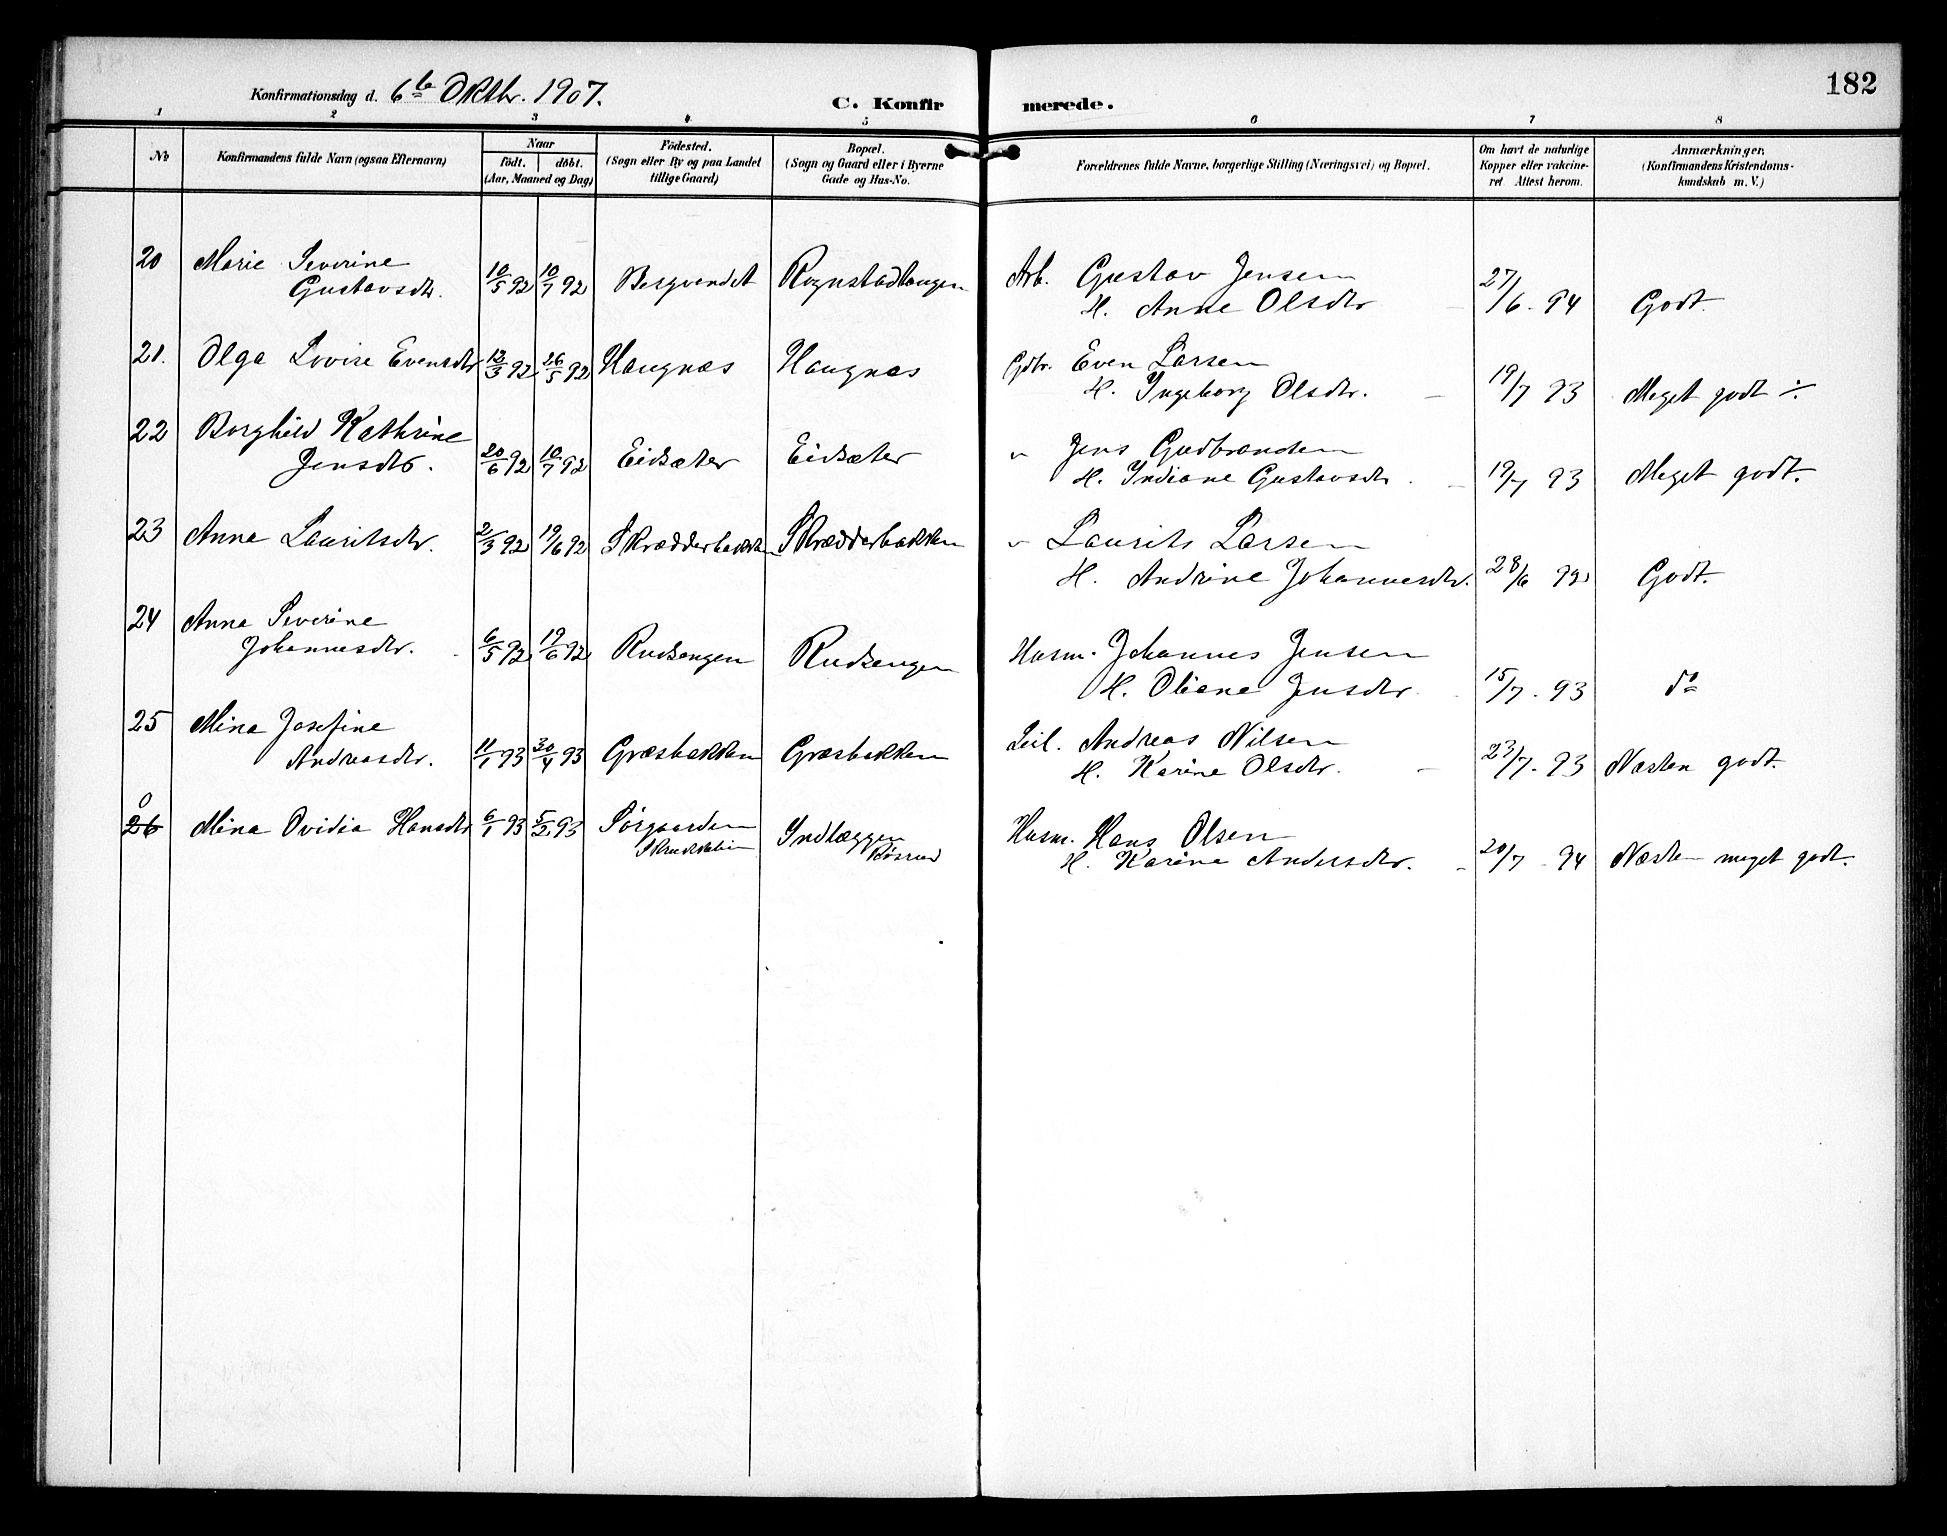 182
Konfirmationsdag d. 6te Oktbr. 1907.
C. Konfirmerede.
1 2 3 4 5 6 7 8
No
Konfirmandens fulde Navn (ogsaa Efternavn)
Naar
födt. döbt.
(Aar, Maaned og Dag)
Födested.
(Sogn eller By og paa Landet
tillige Gaard)
Bopæl.
(Sogn og Gaard eller i Byerne
Gade og Hus-No.
Forældrenes fulde Navne, borgerlige Stilling (Næringsvei) og Bopæl.
Om havt de naturlige
Kopper eller vakcine-
ret Attest herom.
Anmærkninger.
(Konfirmandens Kristendoms-
kundskab m. V.)
20 Marie Severine
Gustavsdtr. 10/5 92 10/7 92 Bergvendet Rognstadhaugen Arb. Gustav Jensen
H. Anne Olsdtr 27/6 - 94 Godt.
21. Olga Lovise Evensdtr 12/3 92 26/5 92 Haugnæs Haugnæs Gdbr. Even Larsen
H. Ingeborg Olsdtr. 19/7 93 Meget godt ÷
22 Borghild Kathrine
Jensdtr. 20/6 92 10/7 92 Eidsæter Eidsæter " Jens Gudbrandsen
H. Indiane Gustavsdtr 19/7 93 Meget godt.
23 Anna Lauritsdtr. 2/3 92 19/6 92 Skrædderbakken Skrædderbakken " Laurits Larsen
H. Andrine Johannesdtr. 28/6 Godt.
24 Anna Severine
Johannesdtr. 6/5 92 19/6 92 Rudsengen Rudsengen Husm. Johannes Jensen
H. Oliane Jensdtr 15/7 - 93 do
25 Mina Josefine
Andreasdtr. 11/1 93 30/4 93 Græsbakken Græsbakken Leil. Andreas Nilsen
H. Karine Olsdtr. 23/7 - 93 Næsten godt.
0
26 Mina Ovidia Hansdtr 6/1 93 5/2 93 Sørgaarden Indlæggen Husm. Hans Olsen
Røsrud
H. Karine Andersdtr. 20/7 - 94 Næsten meget godt.